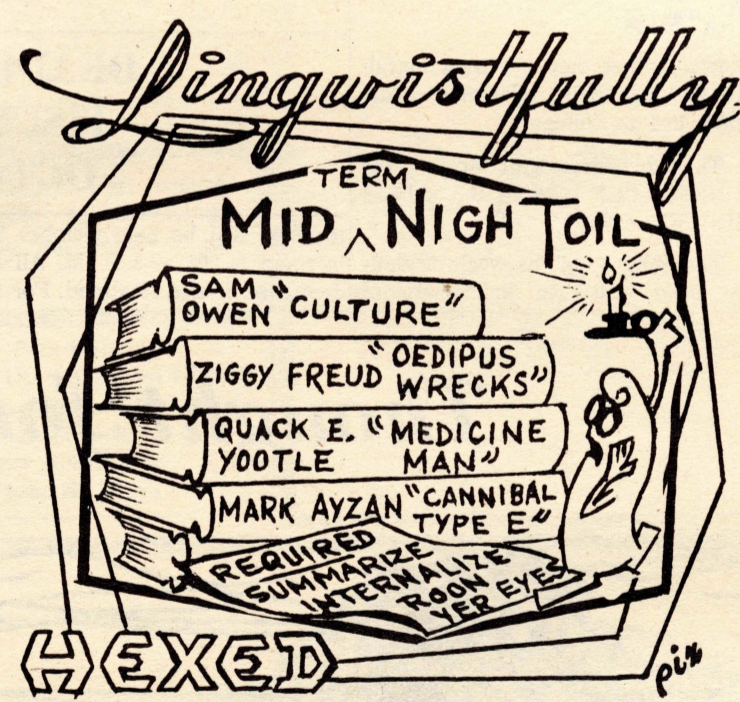 Lingwistfully
TERM
MID ^ NIGHT OIL
SAM
OWEN "CULTURE"
ZIGGY FREUD "OEDIPUS
WRECKS"
QUACK E. "MEDICINE
YOOTLE MAN"
MARK AYZAN "CANNIBAL
TYPE E"
REQUIRED
SUMMARIZE
INTERNALIZE
ROON
YER EYES
HEXED
pix